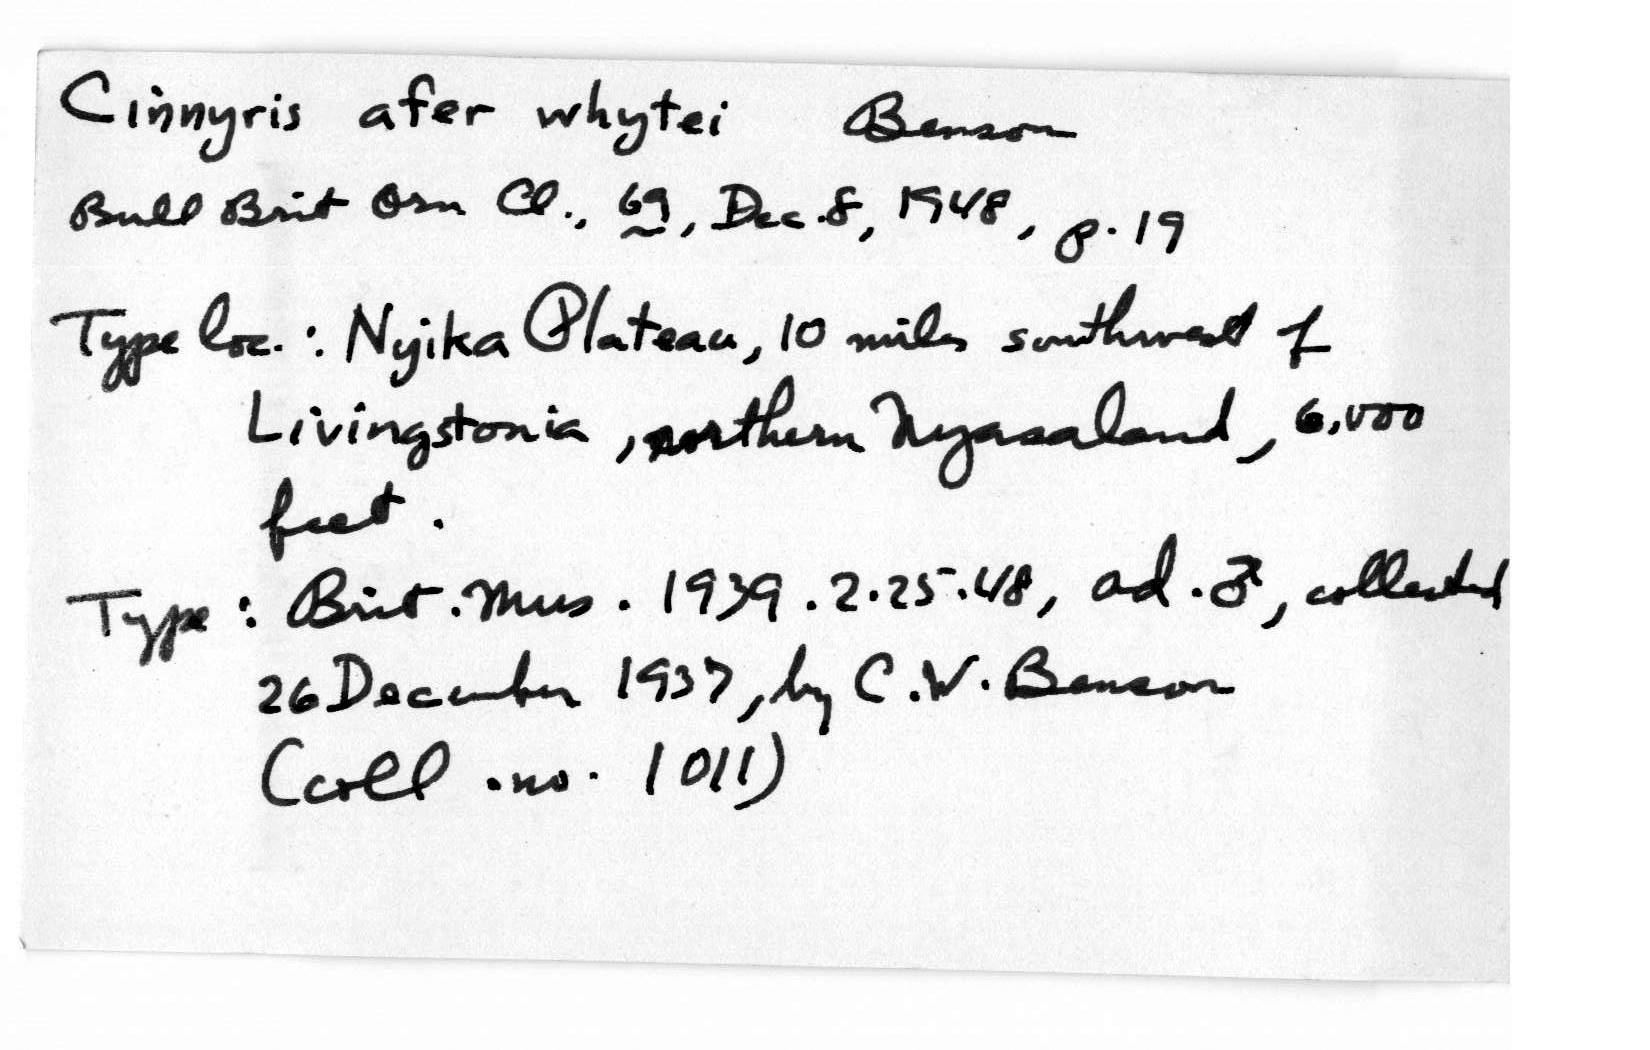 Cinnyris afer whytei Benson
Bull Brit Orn Cl., 69, Dec. 8, 1948, p. 19
Type loc.: Nyika Plateau, 10 miles southwest of
Livingstonia, northern Nyasaland, 6,000
feet.
Type: Brit. Mus. 1939.2.25.48, ad. ♂, collected
26 December 1937, by C.W. Benson
(coll. no. 1011)